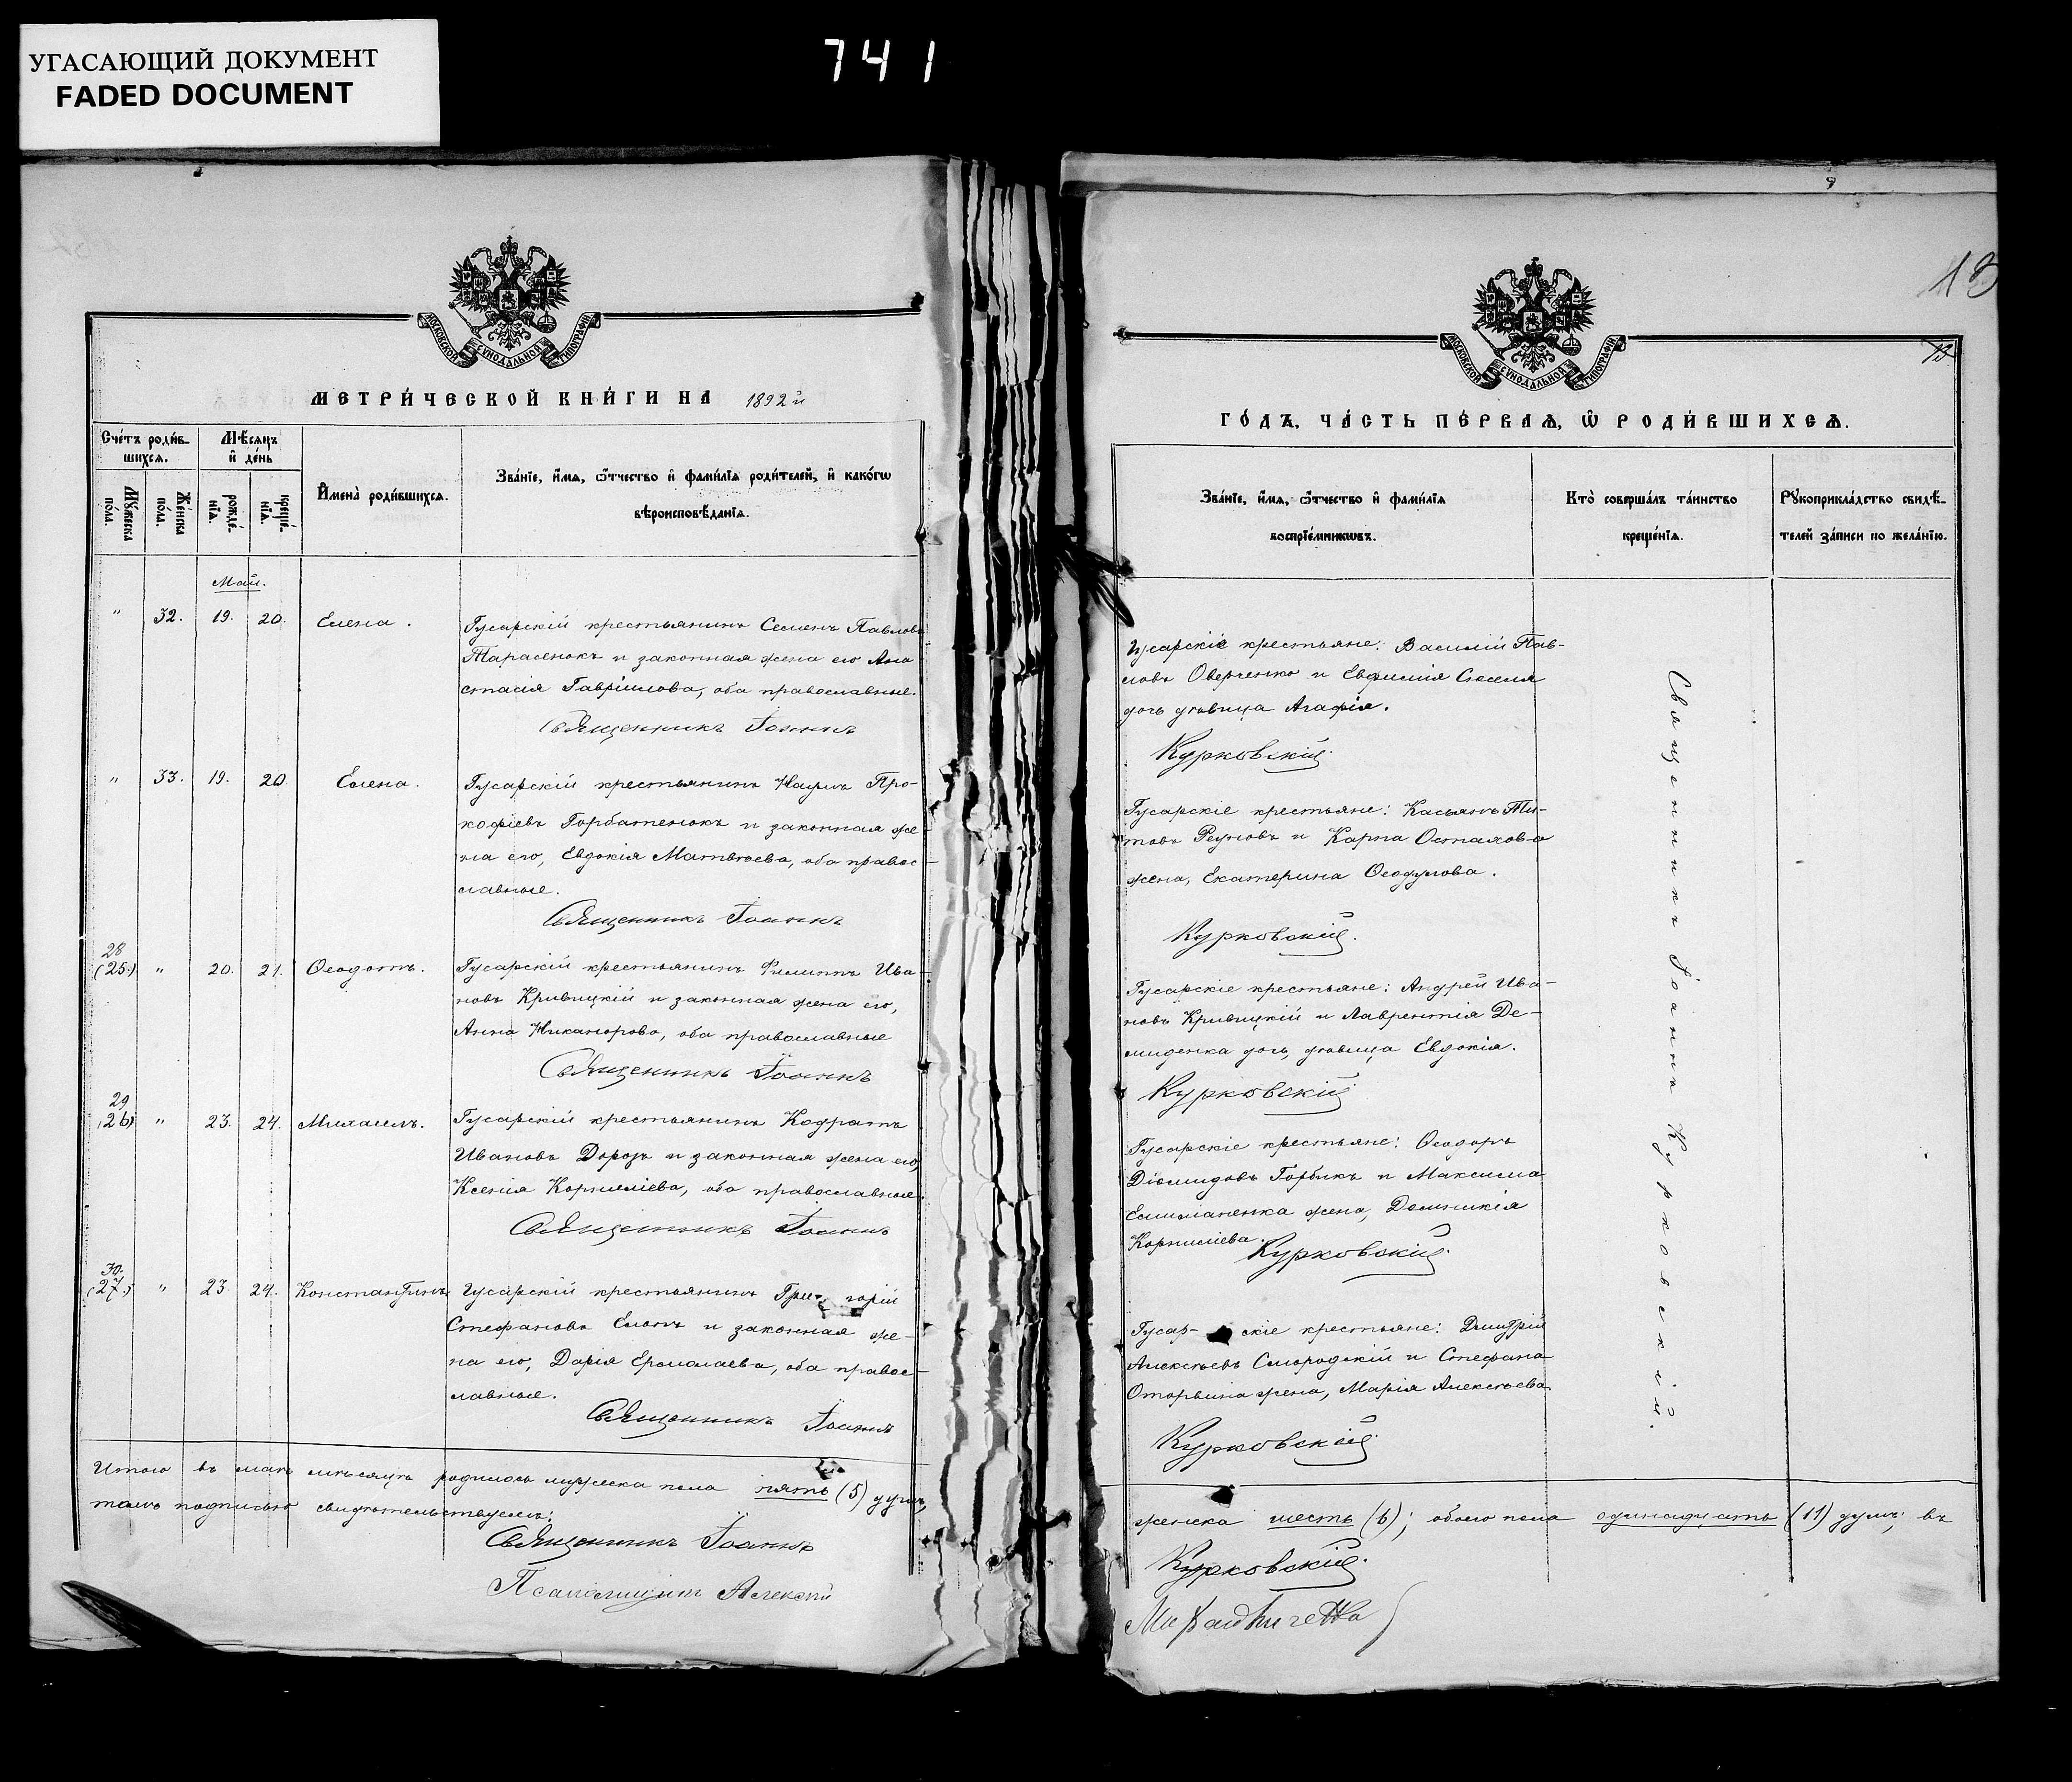 УГАСАЮЩИЙ ДОКУМЕНТ
FADED DOCUMENT
741
МОСКОВСКОЙ СѴНОДАЛЬНОЙ ТИПОГРАФІИ
МЕТРИ́ЧЕСКОЙ КНИ́ГИ НА 1892й
Сче́тъ роди́в-
шихсѧ.
Мѣ́сѧцъ
и҆ де́нь
Мꙋ́жеска
по́ла.
Же́нска
по́ла.
рожде́-
нїѧ.
креще́-
нїѧ.
И҆мена̀ роди́вшихсѧ.
Зва́нїе, и҆́мѧ, ѻ҆́тчество и҆ фами́лїѧ роди́телей, и҆ како́гѡ
вѣроисповѣ́данїѧ.
Май.
" 32. 19. 20. Елена.
Гусарскій крестьянинъ Семенъ Павловъ
Тарасенокъ и законная жена его Ана
стасія Гавріилова, оба православные.
Священникъ Іоаннъ
" 33. 19. 20 Елена.
Гусарскій крестьянинъ Наумъ Про-
кофіевъ Горбатенокъ и законная же-
на его, Евдокія Матвѣева, оба правос-
лавные.
Священникъ Іоаннъ
28
(25.) " 20. 21. Ѳеодотъ.
Гусарскій крестьянинъ Филиппъ Ива-
новъ Кривицкій и законная жена его,
Анна Никанорова, оба православные
Священникъ Іоаннъ
29
(26) " 23. 24. Михаилъ.
Гусарскій крестьянинъ Кодратъ
Ивановъ Дорозъ и законная жена его,
Ксенія Корниліева, оба православные.
Священникъ Іоаннъ
30.
(27.) " 23. 24. Константинъ
Гусарскій крестьянинъ Гри- горій
Стефановъ и законная же-
на его, Дарія Ермолаева, оба правос-
лавные.
Священникъ Іоаннъ
Итого въ маѣ мѣсяцѣ родилось мужеска пола пять (5) душъ,
томъ подписью свидѣтельствуемъ:
Священникъ Іоаннъ
Псаломщикъ Алексѣй
13
13
МОСКОВСКОЙ СѴНОДАЛЬНОЙ ТИПОГРАФІИ
ГО́ДЪ, ЧА́СТЬ ПЕ́РВАѦ, Ѡ҆ РОДИ́ВШИХСѦ.
Зва́нїе, и҆́мѧ, ѻ҆́тчество и҆ фами́лїѧ
воспрїе́мникѡвъ.
Кто̀ соверша́лъ та́инство
креще́нїѧ.
Рꙋкоприкла́дство свидѣ́-
телей за́писи по жела́нїю.
Гусарскіе крестьяне: Василій Пав-
ловъ Оверченко и Евфимія
дочь дѣвица Агафія.
Курковскій.
Гусарскіе крестьяне: Касьянъ Ти-
товъ Реуновъ и Карпа Осталова
жена, Екатерина Ѳеодулова.
Курковскій.
Гусарскіе крестьяне: Андрей Ива-
новъ Кривицкій и Лаврентія Де-
миденка дочь, дѣвица Евдокія.
Курковскій
Гусарскіе крестьяне: Ѳеодоръ
Діомидовъ Горбикъ и Максима
жена, Домникія
Корниліева.
Курковскій.
Гусар- скіе крестьяне: Дмитрій
Алексѣевъ Смородскій и Стефана
жена, Марія Алексѣева.
Курковскій.
Священникъ Іоаннъ Курковскій.
женска шесть (6); обоего пола одинадцать (11) душъ; въ
Курковскій.